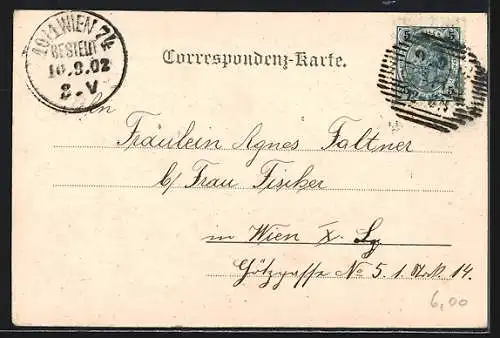 10/1 WIEN 74
BESTELLT
10.9.02
8-V
Correspondenz-Karte.
5 5
An
Fräulein Agnes Faltner
b/ Frau Fischer
in Wien X.
Götzgasse No 5. 1. Stock 14.
6,00